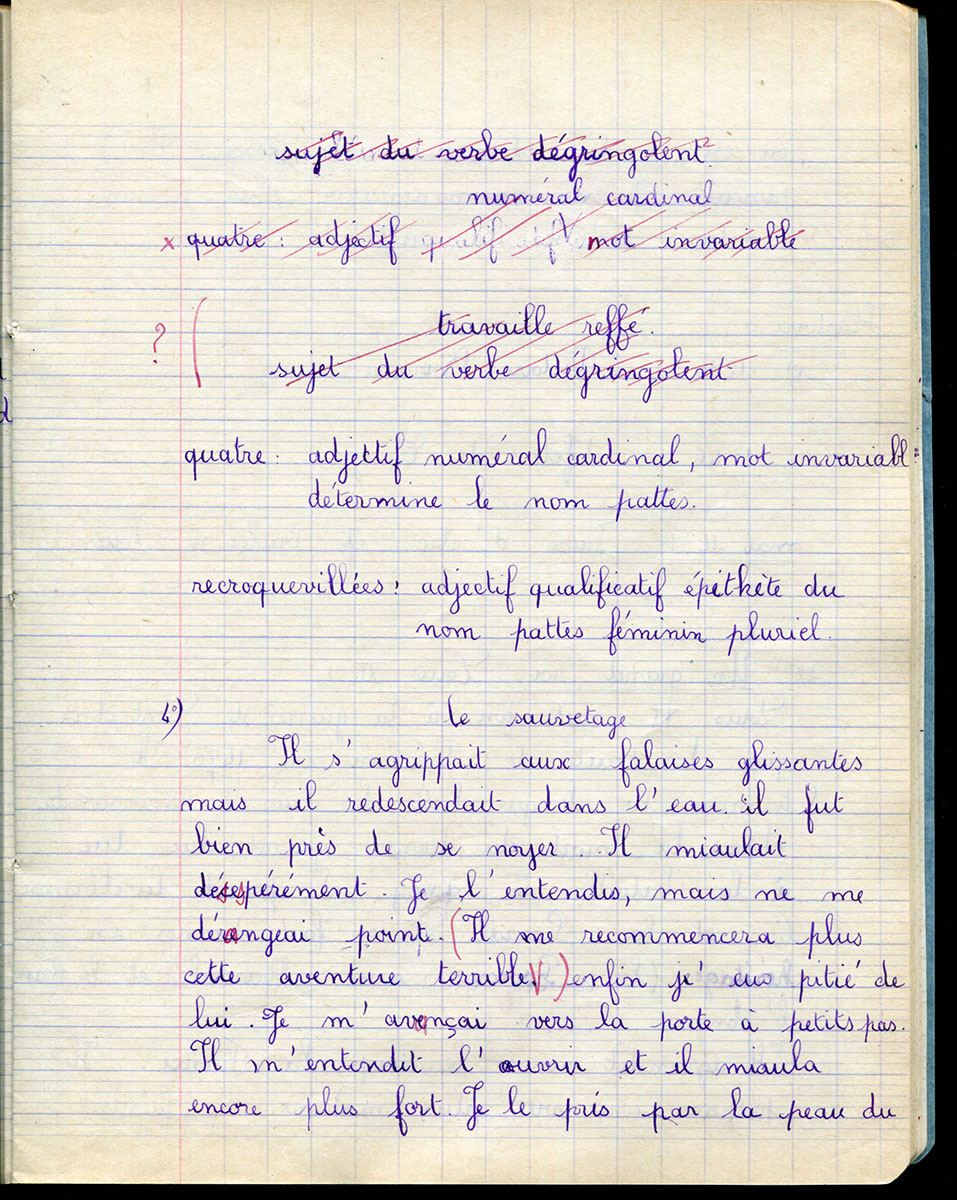 sujet du verbe dégringolent.
numéral cardinal
x quatre : adjectif qualificatif V mot invariable
? ( travaille reffé.
sujet du verbe dégringolent
quatre : adjettif numéral cardinal, mot invariabl
détermine le nom pattes.
recroquevillées : adjectif qualificatif épithète du
nom pattes féminin pluriel.
4°) Le sauvetage
Il s'agrippait aux falaises glissantes
mais il redescendait dans l'eau. il fut
bien près de se noyer. Il miaulait
désespérément. Je l'entendis, mais ne me
dérangeai point. (Il me recommencera plus
cette aventure terrible.) enfin j'eus pitié de
lui. Je m'avançai vers la porte à petits pas.
Il m'entendit l'ouvrir et il miaula
encore plus fort. Je le pris par la peau du